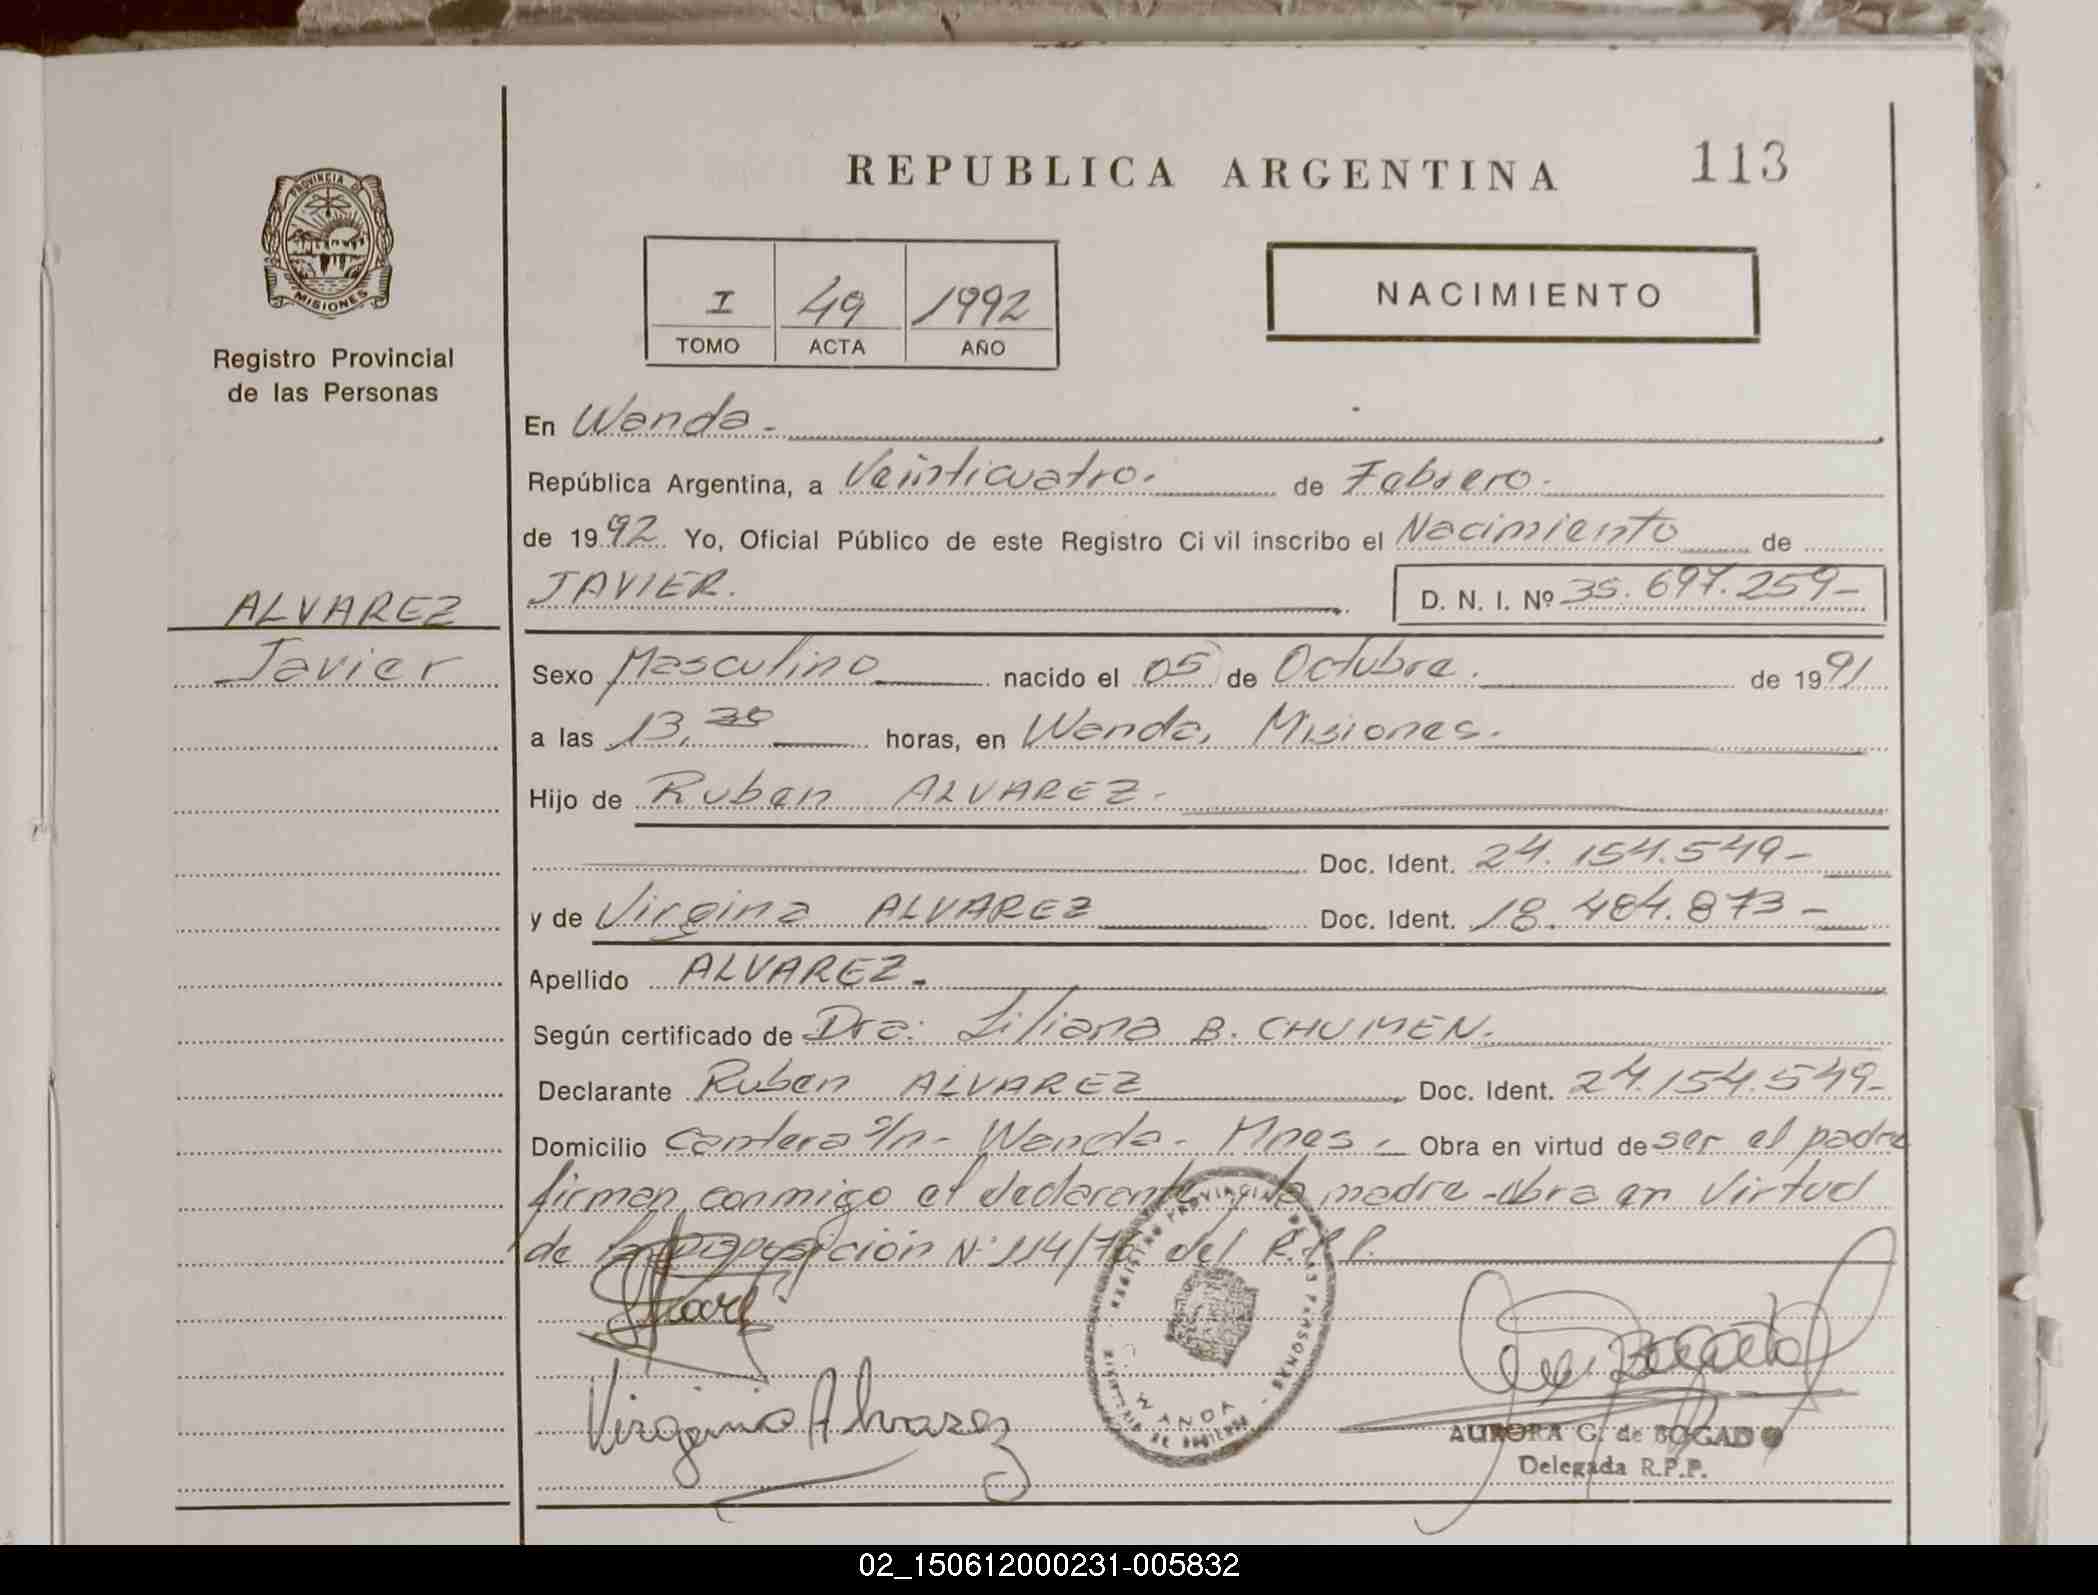 REPUBLICA ARGENTINA 113
PROVINCIA DE
MISIONES
Registro Provincial
de las Personas
I 49 1992
TOMO ACTA AÑO
NACIMIENTO
En Wanda.-
República Argentina, a Veinticuatro.- de Febrero.-
de 1992 Yo, Oficial Público de este Registro Civil inscribo el Nacimiento de
JAVIER. D. N. I. Nº 35.697.259-
ALVAREZ
Javier
Sexo Masculino nacido el 05 de Octubre. de 1991
a las 13,30 horas, en Wanda, Misiones.-
Hijo de Ruben ALVAREZ.-
Doc. Ident. 24.154.549-
y de Virgina ALVAREZ Doc. Ident. 18.484.873-
Apellido ALVAREZ.-
Según certificado de Dra: Liliana B. CHUMEN.
Declarante Ruben ALVAREZ Doc. Ident. 24.154.549-
Domicilio Cantera s/n- Wanda- Mnes.- Obra en virtud de ser el padre
firman conmigo el declarante y la madre-obra en virtud
de la Disposición Nº 114/ del R.P.P.
REGISTRO PROVINCIAL DE LAS PERSONAS
WANDA
Virginia Alvarez
AURORA G. de BOGADO
Delegada R.P.P.
02_150612000231-005832